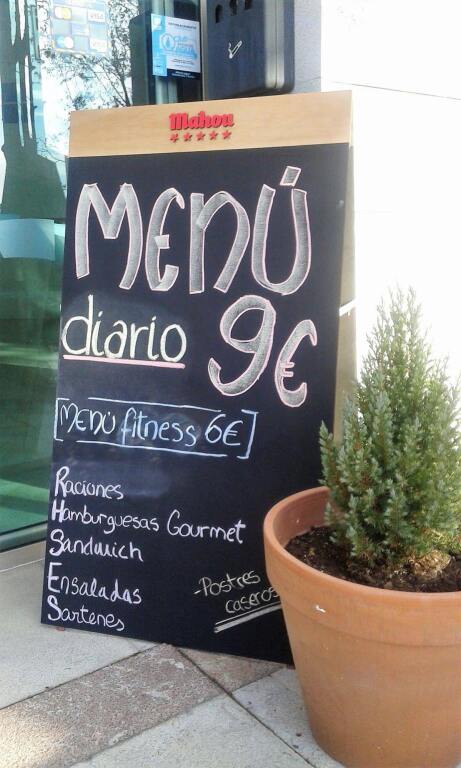 Mahou
MENÚ
diario 9€
[MENÚ fitness 6€]
Raciones
Hamburguesas Gourmet
Sandwich
Ensaladas
Sartenes
-Postres
caseros